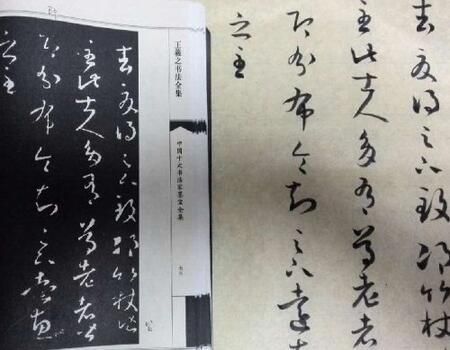 王羲之书法全集
中国十大书法家墨宝全集
去夏得足下致邛竹杖皆
至此士人多有尊老者皆
即分布令知足下遠惠
之至
去夏得足下致邛竹杖
至此士人多有尊老者
即分布令知足下遠
之至